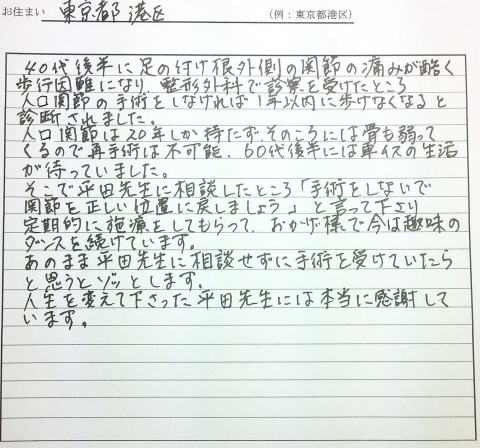 お住まい 東京都 港区 (例：東京都港区)
40代後半に足の付け根外側の関節の痛みが酷く
歩行困難になり、整形外科で診察を受けたところ
人口関節の手術をしなければ1年以内に歩けなくなると
診断されました。
人口関節は20年しか持たず、そのころには骨も弱って
くるので再手術は不可能、60代後半には車イスの生活
が待っていました。
そこで平田先生に相談したところ「手術をしないで
関節を正しい位置に戻しましょう」と言って下さり
定期的に施療をしてもらって、おかげ様で今は趣味の
ダンスを続けています。
あのまま平田先生に相談せずに手術を受けていたら
と思うとゾッとします。
人生を変えて下さった平田先生には本当に感謝して
います。